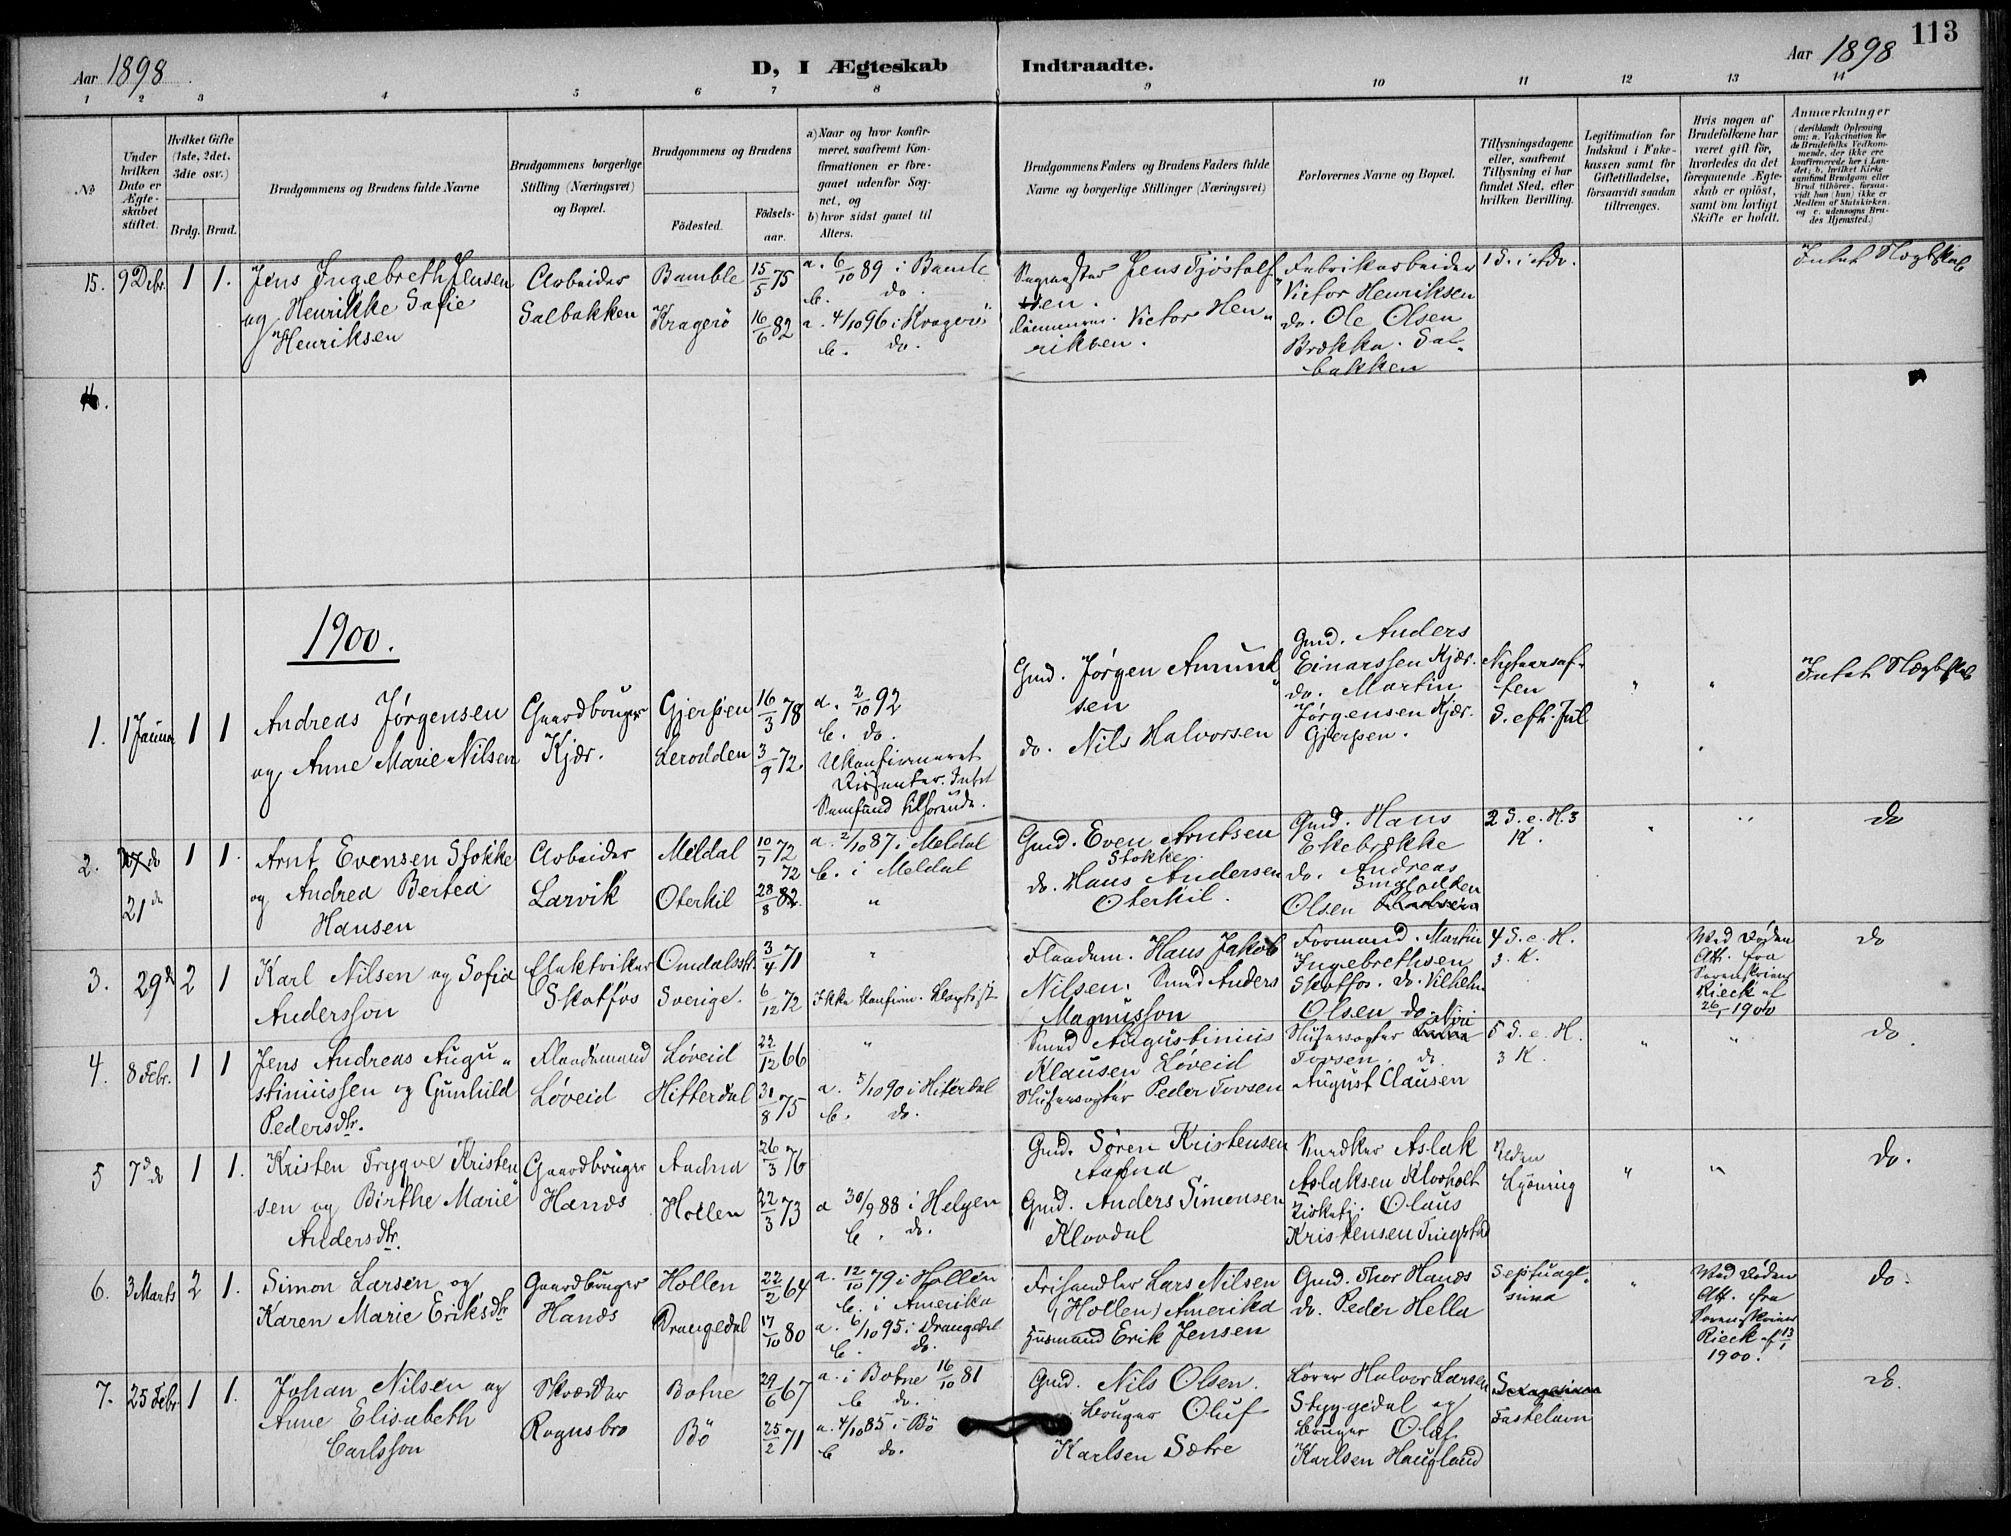 113
Aar 1898
D, I Ægteskab Indtraadte.
Aar 1898
1 2 3 4 5 6 7 8 9 10 11 12 13 14
No
Under hvilken Dato er Ægteskabet stiftet.
Hvilket Gifte (1ste, 2det, 3die osv.)
Brdg. Brud.
Brudgommens og Brudens fulde Navne
Brudgommens borgerlige Stilling (Næringsvei) og Bopæl.
Brudgommens og Brudens
Födested.
Födsels-aar.
a) Naar og hvor konfirmeret, saafremt Konfirmationen er foregaaet udenfor Sognet, og
b) hvor sidst gaaet til Alters.
Brudgommens Faders og Brudens Faders fulde Navne og borgerlige Stillinger (Næringsvei)
Forlovernes Navne og Bopæl.
Tillysningsdagene eller, saafremt Tillysning ei har fundet Sted, efter hvilken Bevilling.
Legitimation for Indskud i Enkekassen samt for Giftetilladelse, forsaavidt saadan tiltrænges.
Hvis nogen af Brudefolkene har været gift för, hvorledes da det foregaaende Ægteskab er oplöst, samt om lovligt Skifte er holdt.
Anmærkninger
15. 9 Debr. 1 1.
Jens Ingebreth Jensen
og Henrikke Sofie
Henriksen
Arbeider
Salbakken
Bamble 15/5 75
Kragerö 16/6 82
a. 6/10 89 i Bamle
b. do.
a. 4/10 96 i Kragerö
b. do.
Jens Tjöstolf
sen.
Victor Hen
riksen.
Fabrikarbeider
Victor Henriksen
do. Ole Olsen
Brække. Sal-
bakken
1 S. i Adv.
Intet Slægtskab
1900.
1. 1 Januar 1 1
Andreas Jørgensen
og Anne Marie Nilsen
Gaardbruger
Kjær.
Gjerpen 16/3 78
Lerodden 3/9 72
a. 2/10 92
b. do.
Ukonfirmeret
Dissenter. Intet
Samfund tilhørende.
Gmd. Jørgen Amund
sen
do. Nils Halvorsen
Gmd. Anders
Einarssen Kjær.
do. Martin
Jørgensen Kjær.
Gjerpen.
Nytaarsaf-
ten
S. eft. Jul
" "
Intet Slægtskab
2. do 1 1.
21 do
Arnt Evensen Stokke
og Andrea Bertea
Hansen
Arbeider
Larvik
Meldal 10/7 72
72
Oterkil 28/8 82.
a. 2/10 87 i Meldal
b. i Meldal
"
Gmd. Even Arntsen
Stokke.
do. Hans Andersen
Oterkil.
Gmd. Hans
Ekebrække
do. Andreas
Olsen
2 S. e. H. 3
K.
do
3. 29 d 2 1
Karl Nilsen og Sofia
Andersson
Elektriker
Skotfos
Omdalsstr. 3/4 71
Sverige. 6/12 72
"
Ikke konfirm.
Flaadem. Hans Jakob
Nilsen. Smed Anders
Magnusson
Formand. Martin
Ingebrethsen
Skotfos. do. Vilhelm
Olsen do.
4 S. e. H.
3. K.
Ved Döden
Att. fra
Sorenskriver
Rieck af
26/1 1900
do
4. 8 Febr. 1 1
Jens Andreas Augu-
stiniussen og Gunhild
Pedersdtr.
Flaademand
Løveid
Løveid 22/12 66
Hitterdal 31/8 75
"
a. 5/10 90 i Hiterdal
b. do.
Smed Augustinius
Klausen Løveid
Slusevogter Peder Tovsen
Slusevogter
Tovsen. do
August Clausen
5 S. e. H.
3 K.
" "
do
5 7 d do 1 1.
Kristen Trygve Kristen
sen og Birthe Marie
Andersdtr.
Gaardbruger
Hanæs
Aadna 26/3 76
Hollen 22/3 73
a 30/9 88 i Helgen
b. do.
Gmd. Sören Kristensen
Aadna
Gmd. Anders Simonsen
Klovdal
Snedker Aslak
Aslaksen Klovholt
Olaus
Kristensen Tingstad
" "
do.
6. 3 Marts 2 1.
Simon Larsen og
Karen Marie Eriksdtr
Gaardbruger
Hanæs
Hollen 22/2 64
Drangedal 17/10 80
a. 12/10 79 i Hollen
b. i Amerika
a. 6/10 95 i Drangedal
b. do.
Lars Nilsen
(Hollen) Amerika
Husmand Erik Jensen
Gmd. Thor Hanæs
do. Peder Hella
Septuage-
sima
"
Ved Döden
Att. fra
Sorenskriver
Rieck af 13/1
1900.
do.
7. 25 Febr 1 1.
Johan Nilsen og
Anne Elisabeth
Carlsson
Skrædder
Rognsbro
Botne 29/6 67
Bö 25/2 71
a. i Botne 16/10 81
b do.
a. 4/10 85 i Bö
b do.
Gmd. Nils Olsen.
Bruger Oluf
Karlsen Sætre
Lærer Halvor Larsen
Styggedal og
Bruger Oluf
Karlsen Haugland
Fastelavn
do.